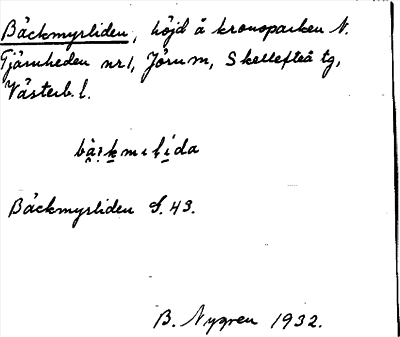 Bäckmyrliden, höjd å kronoparken N.
Tjärnheden nr1, Jörn m, Skellefteå tg,
Västerb. l.
Bäckmyrliden S. 43.
B. Nygren 1932.